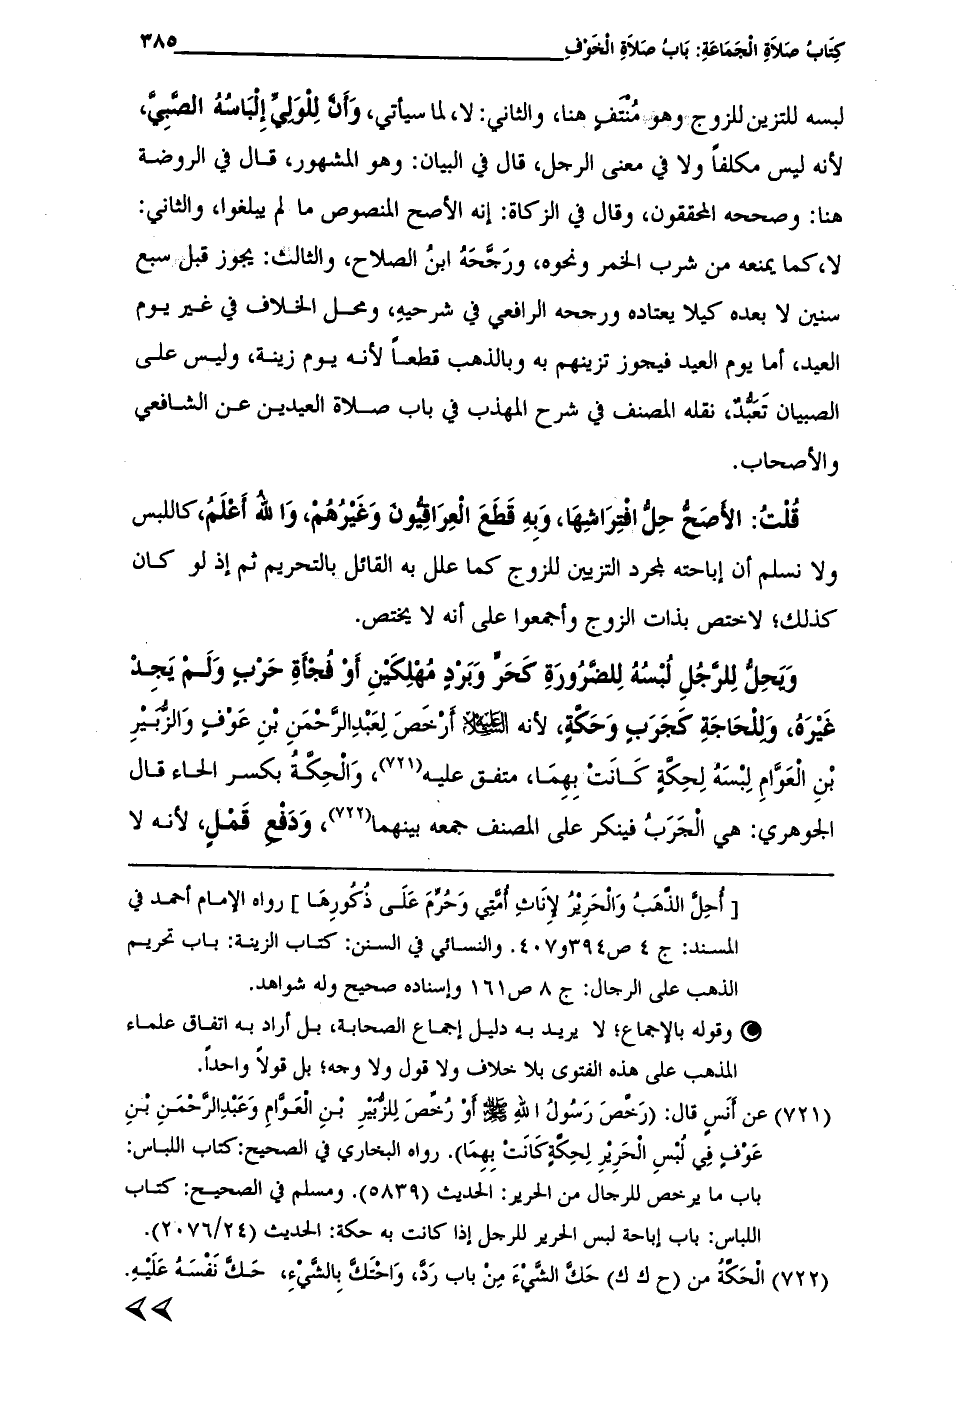 كِتَابُ صَلاَةِ الْجَمَاعَةِ: بَابُ صَلاَةِ الْخَوْفِ ٣٨٥
لبسه للتزين للزوج وهو مُنْتَفٍ هنا، والثاني: لا، لما سيأتي، وَأَنَّ لِلْوَلِيِّ إِلْبَاسُهُ الصَّبِيَّ،
لأنه ليس مكلفاً ولا في معنى الرجل، قال في البيان: وهو المشهور، قـال في الروضـة
هنا: وصححه المحققون، وقال في الزكاة: إنه الأصح المنصوص ما لم يبلغوا، والثاني:
لا، كما يمنعه من شرب الخمر ونحوه، ورَجَّحَهُ ابنُ الصلاح، والثالث: يجوز قبل سبع
سنين لا بعده كيلا يعتاده ورجحه الرافعي في شرحيهِ، ومحـل الخـلاف في غـير يـوم
العيد، أما يوم العيد فيجوز تزينهم به وبالذهب قطعـاً لأنـه يـوم زينـة، وليـس علـى
الصبيان تَعَبُّدٌ، نقله المصنف في شرح المهذب في باب صـلاة العيديـن عـن الشـافعي
والأصحاب.
قُلْتُ: الأَصَحُّ حِلُّ افْتِرَاشِهَا، وَبِهِ قَطَعَ الْعِرَاقِيُّونَ وَغَيْرُهُمْ، وَا للهُ أَعْلَمُ، كاللبس
ولا نسلم أن إباحته لمجرد التزيين للزوج كما علل به القائل بالتحريم ثم إذ لو كـان
كذلك؛ لاختص بذات الزوج وأجمعوا على أنه لا يختص.
وَيَحِلُّ لِلرَّجُلِ لُبْسُهُ لِلضَّرُورَةِ كَحَرٍّ وَبَرْدٍ مُهْلِكَيْنِ أَوْ فُجْأَةِ حَرْبٍ وَلَـمْ يَجِـدْ
غَيْرَهُ، وَلِلْحَاجَةِ كَجَرَبٍ وَحَكَّةٍ، لأنه العَلِيْهِلاَ أَرْخَصَ لِعَبْدِالرَّحْمَنِ بْنِ عَوْفٍ وَالزُّبَيْرِ
بْنِ الْعَوَّامِ لِبْسَهُ لِحِكَّةٍ كَـانَتْ بِهِمَـا، متفـق عليـه(٧٢١)، وَالْحِكَّةُ بكسر الحاء قال
الجوهري: هي الْجَرَبُ فينكر على المصنف جمعه بينهما(٧٢٢)، وَدَفْعِ قَمْلٍ، لأنـه لا
[ أُحِلَّ الذَّهَبُ وَالْحَرِيْرُ لِإِنَاثِ أُمَّتِي وَحُرِّمَ عَلَـى ذُكُورِهَـا ] رواه الإمـام أحمـد في
المسند: ج ٤ ص٣٩٤ و٤٠٧. والنسائي في السنن: كتـاب الزينـة: بـاب تحريـم
الذهب على الرجال: ج ٨ ص١٦١ وإسناده صحيح وله شواهد.
وقوله بالإجماع؛ لا يريـد بـه دليل إجمـاع الصحابـة، بـل أراد بـه اتفـاق علمـاء
المذهب على هذه الفتوى بلا خلاف ولا قول ولا وجه؛ بل قولاً واحداً.
(٧٢١) عن أَنَسٍ قال: (رَخَّصَ رَسُولُ ا للهِ ﷺ أَوْ رُخِّصَ لِلزُّبَيْرِ بْـنِ الْعَـوَّامِ وَعَبْدِالرَّحْمَـنِ بْـنِ
عَوْفٍ فِي لُبْسِ الْحَرِيْرِ لِحِكَّةٍ كَانَتْ بِهِمَا). رواه البخاري في الصحيح:كتاب اللباس:
باب ما يرخص للرجال من الحرير: الحديث (٥٨٣٩). ومسلم في الصحيـح: كتـاب
اللباس: باب إباحة لبس الحرير للرجل إذا كانت به حكة: الحديث (٢٠٧٦/٢٤).
(٧٢٢) الْحَكَّةُ من (ح ك ك) حَكَّ الشَّيْءَ مِنْ باب رَدَّ، وَاحْتَكَّ بِالشَّيْءِ، حَـكَّ نَفْسَـهُ عَلَيْـهِ.